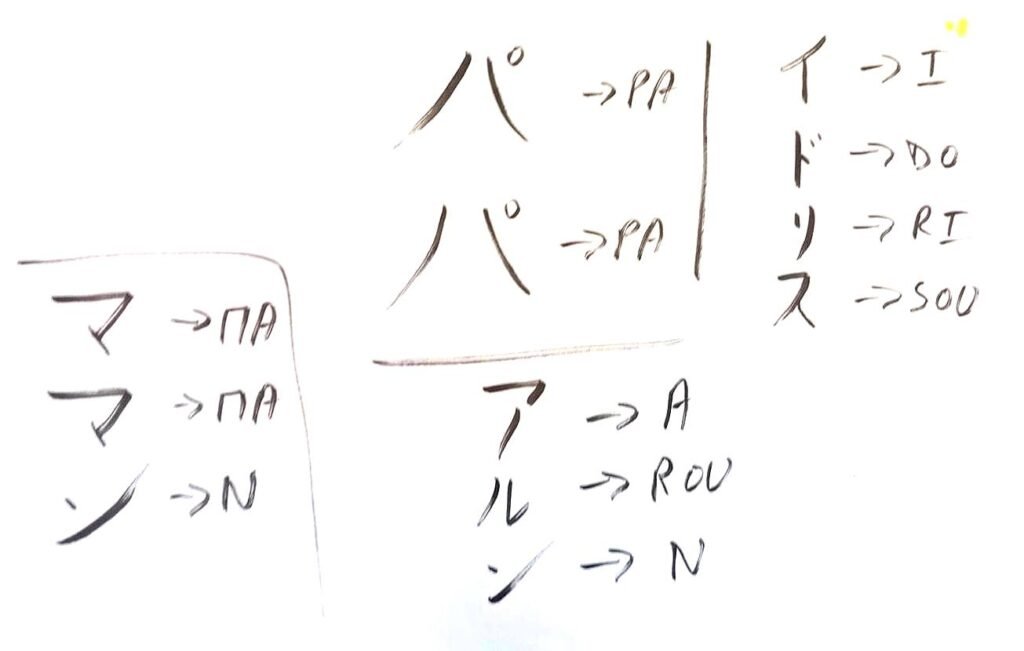 パ → PA
パ → PA
イ → I
ド → DO
リ → RI
ス → SOU
マ → MA
マ → MA
ン → N
ア → A
ル → ROU
ン → N